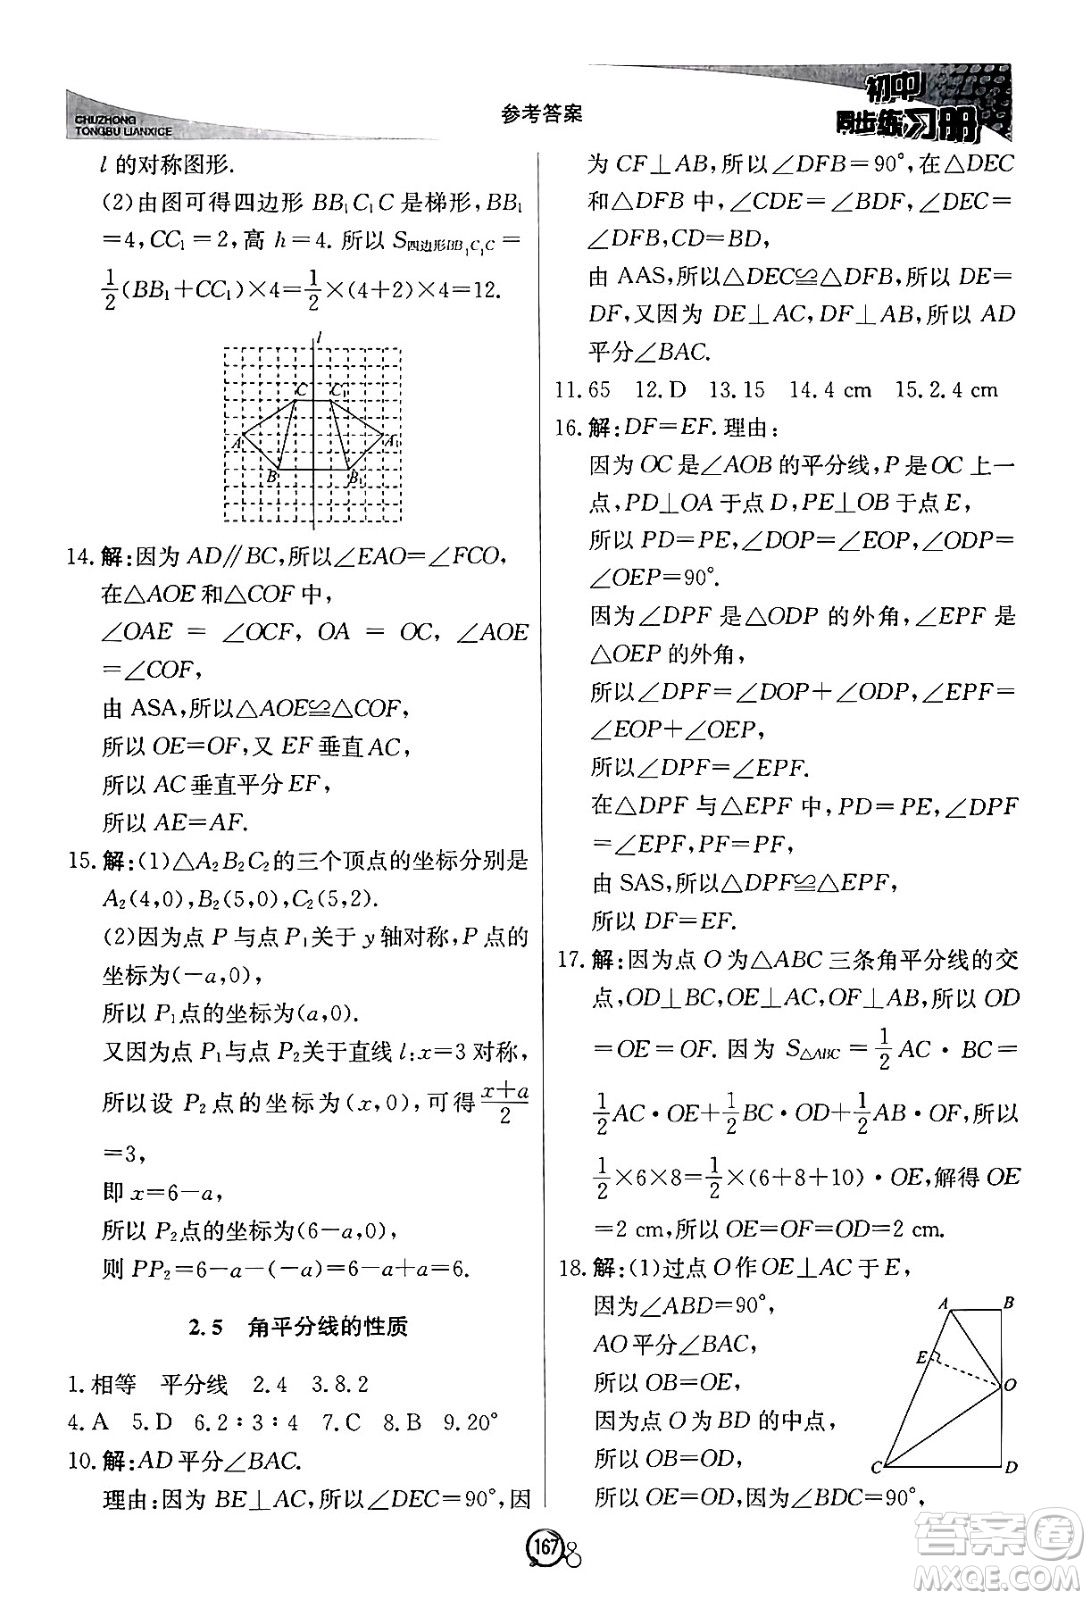 CHUZHONG
TONGBU LIANXICE
参考答案
初中
同步练习册
l 的对称图形.
(2)由图可得四边形 BB₁C₁C 是梯形,BB₁
=4,CC₁=2,高 h=4. 所以 S四边形BB₁C₁C=
1/2(BB₁+CC₁)×4=1/2×(4+2)×4=12.
l
C C₁
A A₁
B B₁
14. 解:因为 AD∥BC,所以∠EAO=∠FCO,
在△AOE 和△COF 中,
∠OAE = ∠OCF, OA = OC, ∠AOE
=∠COF,
由 ASA,所以△AOE≌△COF,
所以 OE=OF,又 EF 垂直 AC,
所以 AC 垂直平分 EF,
所以 AE=AF.
15. 解:(1)△A₂B₂C₂的三个顶点的坐标分别是
A₂(4,0),B₂(5,0),C₂(5,2).
(2)因为点 P 与点 P₁关于 y 轴对称,P 点的
坐标为(-a,0),
所以 P₁点的坐标为(a,0).
又因为点 P₁与点 P₂关于直线 l:x=3 对称,
所以设 P₂点的坐标为(x,0),可得(x+a)/2
=3,
即 x=6-a,
所以 P₂点的坐标为(6-a,0),
则 PP₂=6-a-(-a)=6-a+a=6.
2.5 角平分线的性质
1.相等 平分线 2.4 3.8.2
4.A 5.D 6.2∶3∶4 7.C 8.B 9.20°
10. 解:AD 平分∠BAC.
理由:因为 BE⊥AC,所以∠DEC=90°,因
为 CF⊥AB,所以∠DFB=90°,在△DEC
和△DFB 中,∠CDE=∠BDF,∠DEC=
∠DFB,CD=BD,
由 AAS,所以△DEC≌△DFB,所以 DE=
DF,又因为 DE⊥AC,DF⊥AB,所以 AD
平分∠BAC.
11.65 12.D 13.15 14.4 cm 15.2.4 cm
16. 解:DF=EF.理由:
因为 OC 是∠AOB 的平分线,P 是 OC 上一
点,PD⊥OA 于点 D,PE⊥OB 于点 E,
所以 PD=PE,∠DOP=∠EOP,∠ODP=
∠OEP=90°.
因为∠DPF 是△ODP 的外角,∠EPF 是
△OEP 的外角,
所以∠DPF=∠DOP+∠ODP,∠EPF=
∠EOP+∠OEP,
所以∠DPF=∠EPF.
在△DPF 与△EPF 中,PD=PE,∠DPF
=∠EPF,PF=PF,
由 SAS,所以△DPF≌△EPF,
所以 DF=EF.
17. 解:因为点 O 为△ABC 三条角平分线的交
点,OD⊥BC,OE⊥AC,OF⊥AB,所以 OD
=OE=OF. 因为 S△ABC=1/2AC·BC=
1/2AC·OE+1/2BC·OD+1/2AB·OF,所以
1/2×6×8=1/2×(6+8+10)·OE,解得 OE
=2 cm,所以 OE=OF=OD=2 cm.
18. 解:(1)过点 O 作 OE⊥AC 于 E,
因为∠ABD=90°,
AO 平分∠BAC,
所以 OB=OE,
因为点 O 为 BD 的中点,
所以 OB=OD,
所以 OE=OD,因为∠BDC=90°,
A B
E
O
C D
167
答案卷
MXQE.COM